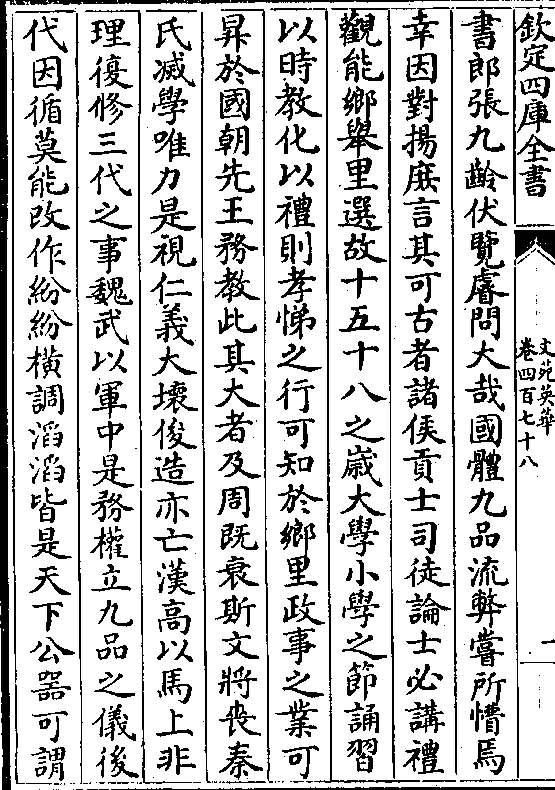 欽定四庫全書
文苑英華
卷四百七十八
一
書郎張九齡伏覽睿問大哉國體九品流弊嘗所懵焉
幸因對揚庶言其可古者諸侯貢士司徒論士必講禮
觀能鄉舉里選故十五十八之歲大學小學之節誦習
以時教化以禮則孝悌之行可知於鄉里政事之業可
昇於國朝先王務教此其大者及周既衰斯文將喪秦
氏滅學唯力是視仁義大壞俊造亦亡漢高以馬上非
理復修三代之事魏武以軍中是務權立九品之儀後
代因循莫能改作紛紛橫調滔滔皆是天下公器可謂